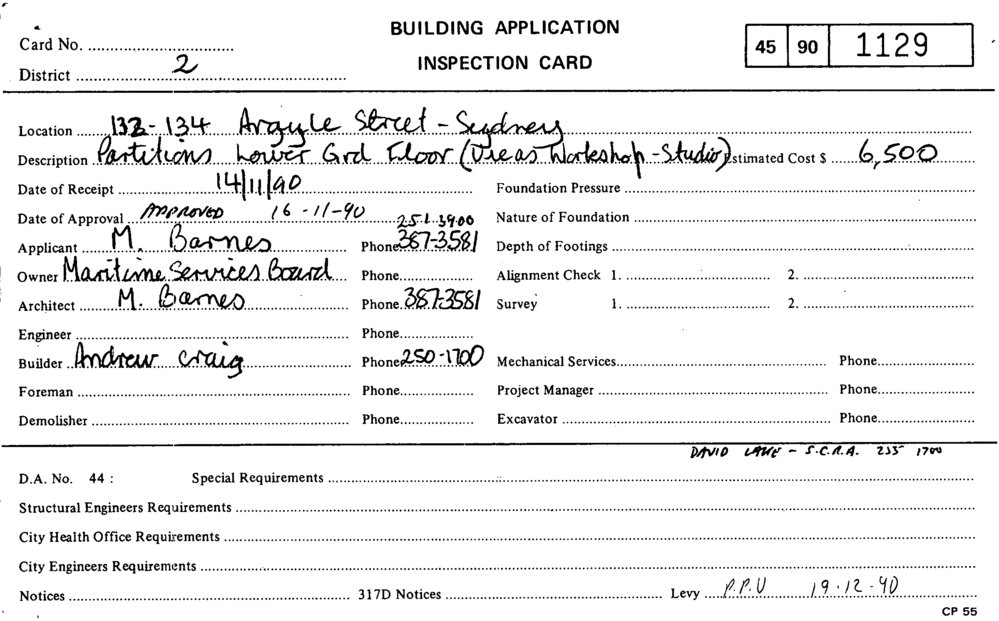 BUILDING APPLICATION
INSPECTION CARD
Card No.
District 2
45 90 1129
Location 132-134 Argyle Street - Sydney
Description Partitions Lower Grd Floor (Use as Workshop - Studio) Estimated Cost $ 6,500
Date of Receipt 14/11/90 Foundation Pressure
Date of Approval APPROVED 16-11-90 251.3900 Nature of Foundation
Applicant M. Barnes Phone 387-3581 Depth of Footings
Owner Maritime Services Board Phone Alignment Check 1. 2.
Architect M. Barnes Phone 387-3581 Survey 1. 2.
Engineer Phone
Builder Andrew Craig Phone 250-1700 Mechanical Services Phone
Foreman Phone Project Manager Phone
Demolisher Phone Excavator Phone
DAVID - S.C.R.A. 255 1700
D.A. No. 44 : Special Requirements
Structural Engineers Requirements
City Health Office Requirements
City Engineers Requirements
Notices 317D Notices Levy P.P.U 19-12-90
CP 55